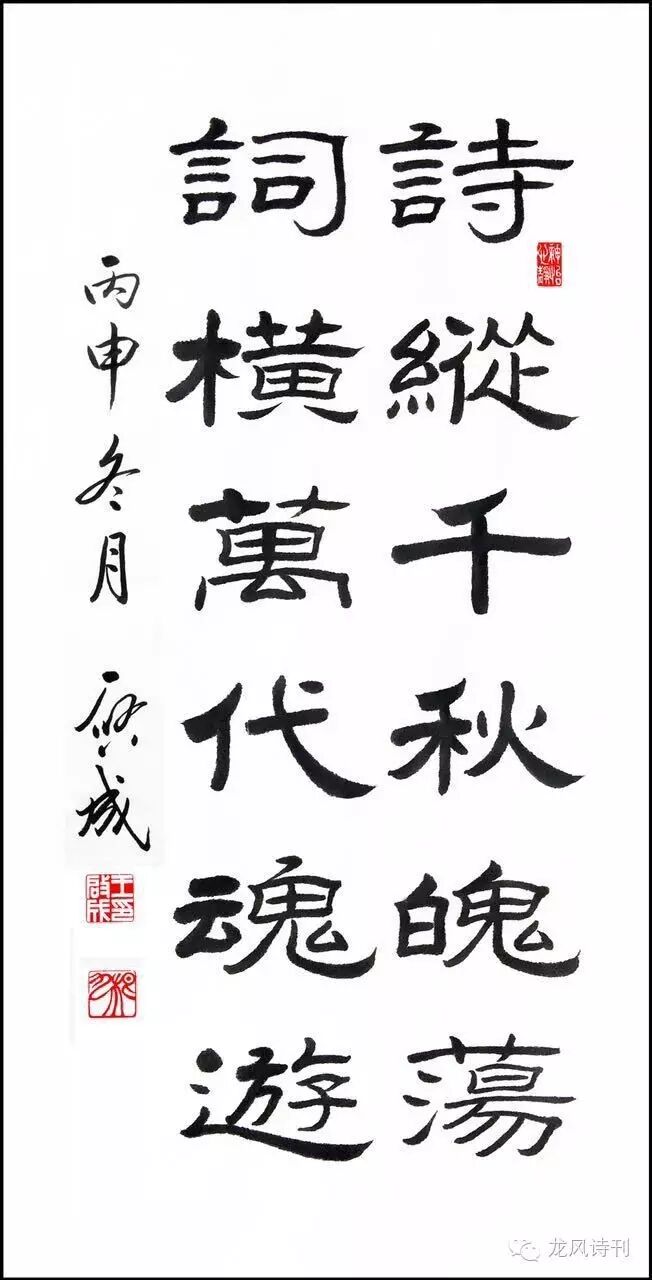 詩縱千秋魄蕩
詞橫萬代魂遊
丙申冬月 啓成
王啟成印
龙风诗刊